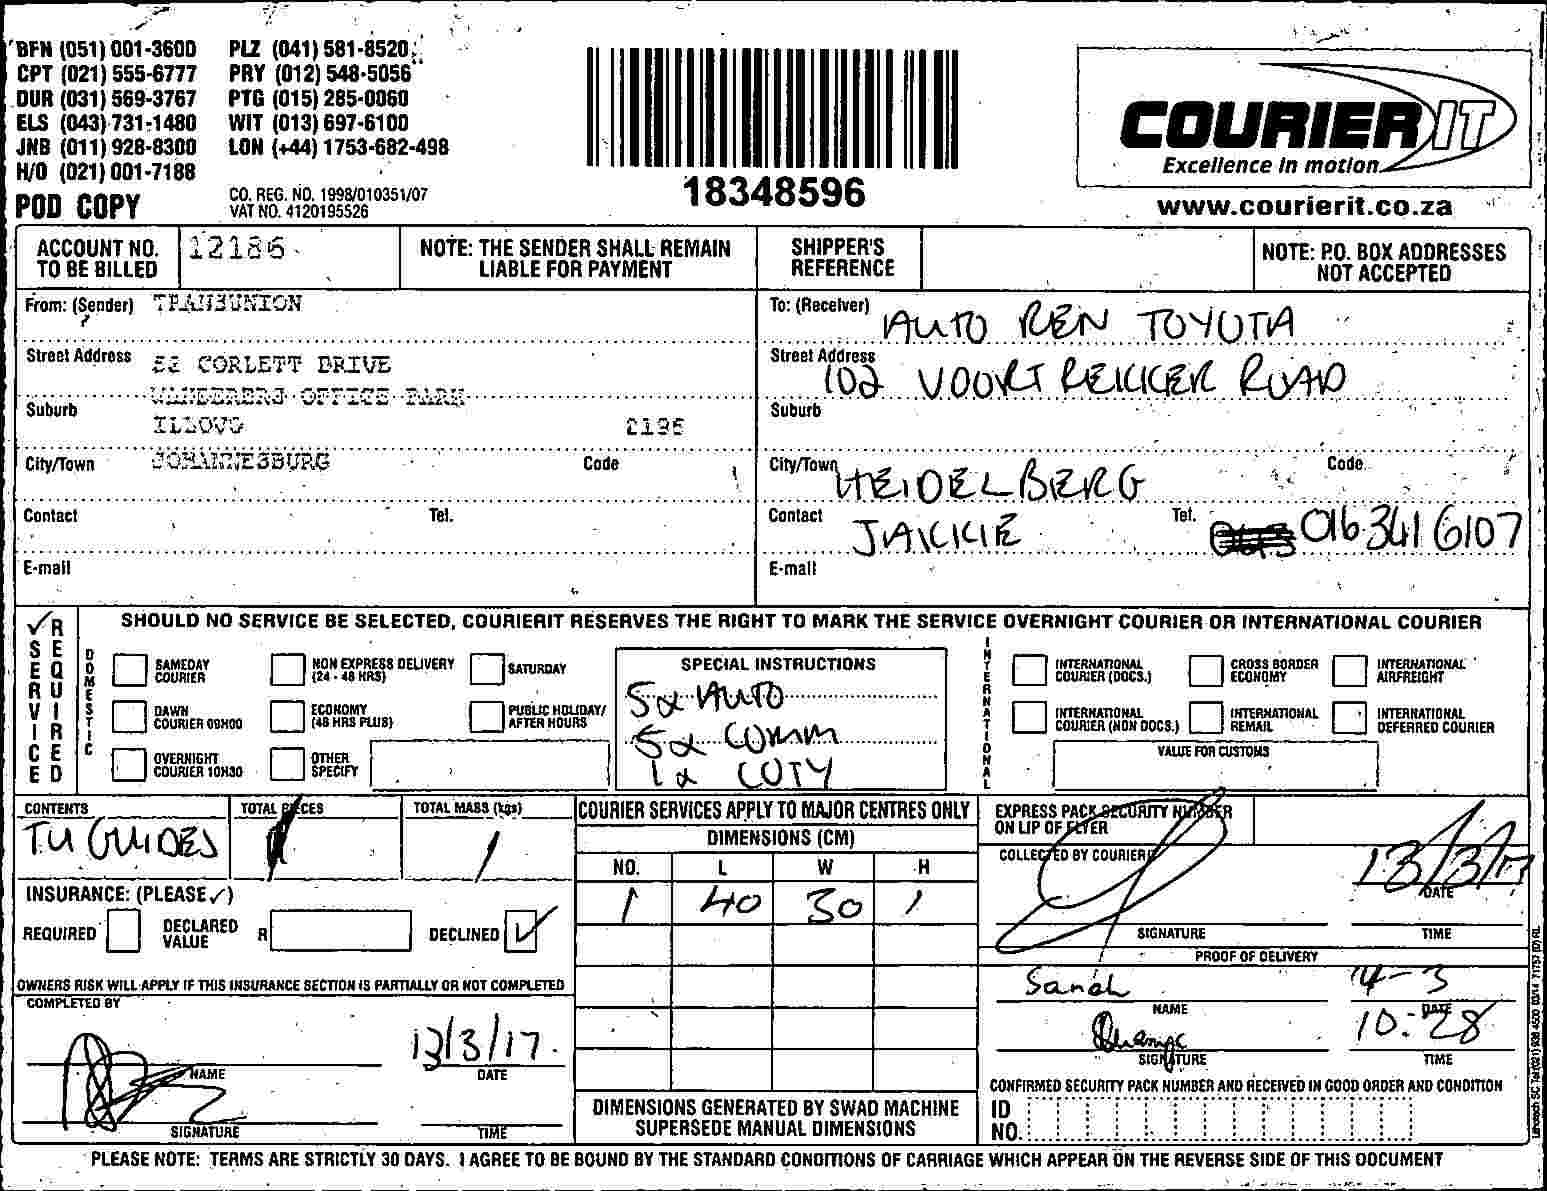 BFN (051) 001-3600 PLZ (041) 581-8520
CPT (021) 555-6777 PRY (012) 548-5056
DUR (031) 569-3767 PTG (015) 285-0060
ELS (043) 731-1480 WIT (013) 697-6100
JNB (011) 928-8300 LON (+44) 1753-682-498
H/O (021) 001-7188
POD COPY
CO. REG. NO. 1998/010351/07
VAT NO. 4120195526
18348596
COURIER IT
Excellence in motion
www.courierit.co.za
ACCOUNT NO. TO BE BILLED 12186
NOTE: THE SENDER SHALL REMAIN LIABLE FOR PAYMENT
SHIPPER'S REFERENCE
NOTE: P.O. BOX ADDRESSES NOT ACCEPTED
From: (Sender) TRANSUNION
Street Address 52 CORLETT DRIVE
WANDERERS OFFICE PARK
Suburb ILLOVO 2196
City/Town JOHANNESBURG Code
Contact Tel.
E-mail
To: (Receiver) AUTO REN TOYOTA
Street Address 102 VOORTREKKER ROAD
Suburb
City/Town HEIDELBERG Code
Contact JAKKIE Tel. 016 341 6107
E-mail
✓ SERVICE REQUIRED
SHOULD NO SERVICE BE SELECTED, COURIERIT RESERVES THE RIGHT TO MARK THE SERVICE OVERNIGHT COURIER OR INTERNATIONAL COURIER
DOMESTIC
SAMEDAY COURIER
NON EXPRESS DELIVERY (24 - 48 HRS)
SATURDAY
DAWN COURIER 09H00
ECONOMY (48 HRS PLUS)
PUBLIC HOLIDAY/ AFTER HOURS
OVERNIGHT COURIER 10H30
OTHER SPECIFY
SPECIAL INSTRUCTIONS
5x AUTO
5x COMM
1x COTY
INTERNATIONAL
INTERNATIONAL COURIER (DOCS.)
CROSS BORDER ECONOMY
INTERNATIONAL AIRFREIGHT
INTERNATIONAL COURIER (NON DOCS.)
INTERNATIONAL REMAIL
INTERNATIONAL DEFERRED COURIER
VALUE FOR CUSTOMS
CONTENTS TU GUIDES
TOTAL PIECES 1
TOTAL MASS (kgs) 1
INSURANCE: (PLEASE ✓)
REQUIRED DECLARED VALUE R DECLINED ✓
OWNERS RISK WILL APPLY IF THIS INSURANCE SECTION IS PARTIALLY OR NOT COMPLETED
COMPLETED BY
NAME 13/3/17 DATE
SIGNATURE TIME
COURIER SERVICES APPLY TO MAJOR CENTRES ONLY
DIMENSIONS (CM)
NO. L W H
1 40 30 1
DIMENSIONS GENERATED BY SWAD MACHINE
SUPERSEDE MANUAL DIMENSIONS
EXPRESS PACK SECURITY NUMBER
ON LIP OF FLYER
COLLECTED BY COURIERIT 13/3/17
DATE
SIGNATURE TIME
PROOF OF DELIVERY
Sarah 14-3
NAME DATE
10:28
SIGNATURE TIME
CONFIRMED SECURITY PACK NUMBER AND RECEIVED IN GOOD ORDER AND CONDITION
ID NO.
PLEASE NOTE: TERMS ARE STRICTLY 30 DAYS. I AGREE TO BE BOUND BY THE STANDARD CONDITIONS OF CARRIAGE WHICH APPEAR ON THE REVERSE SIDE OF THIS DOCUMENT